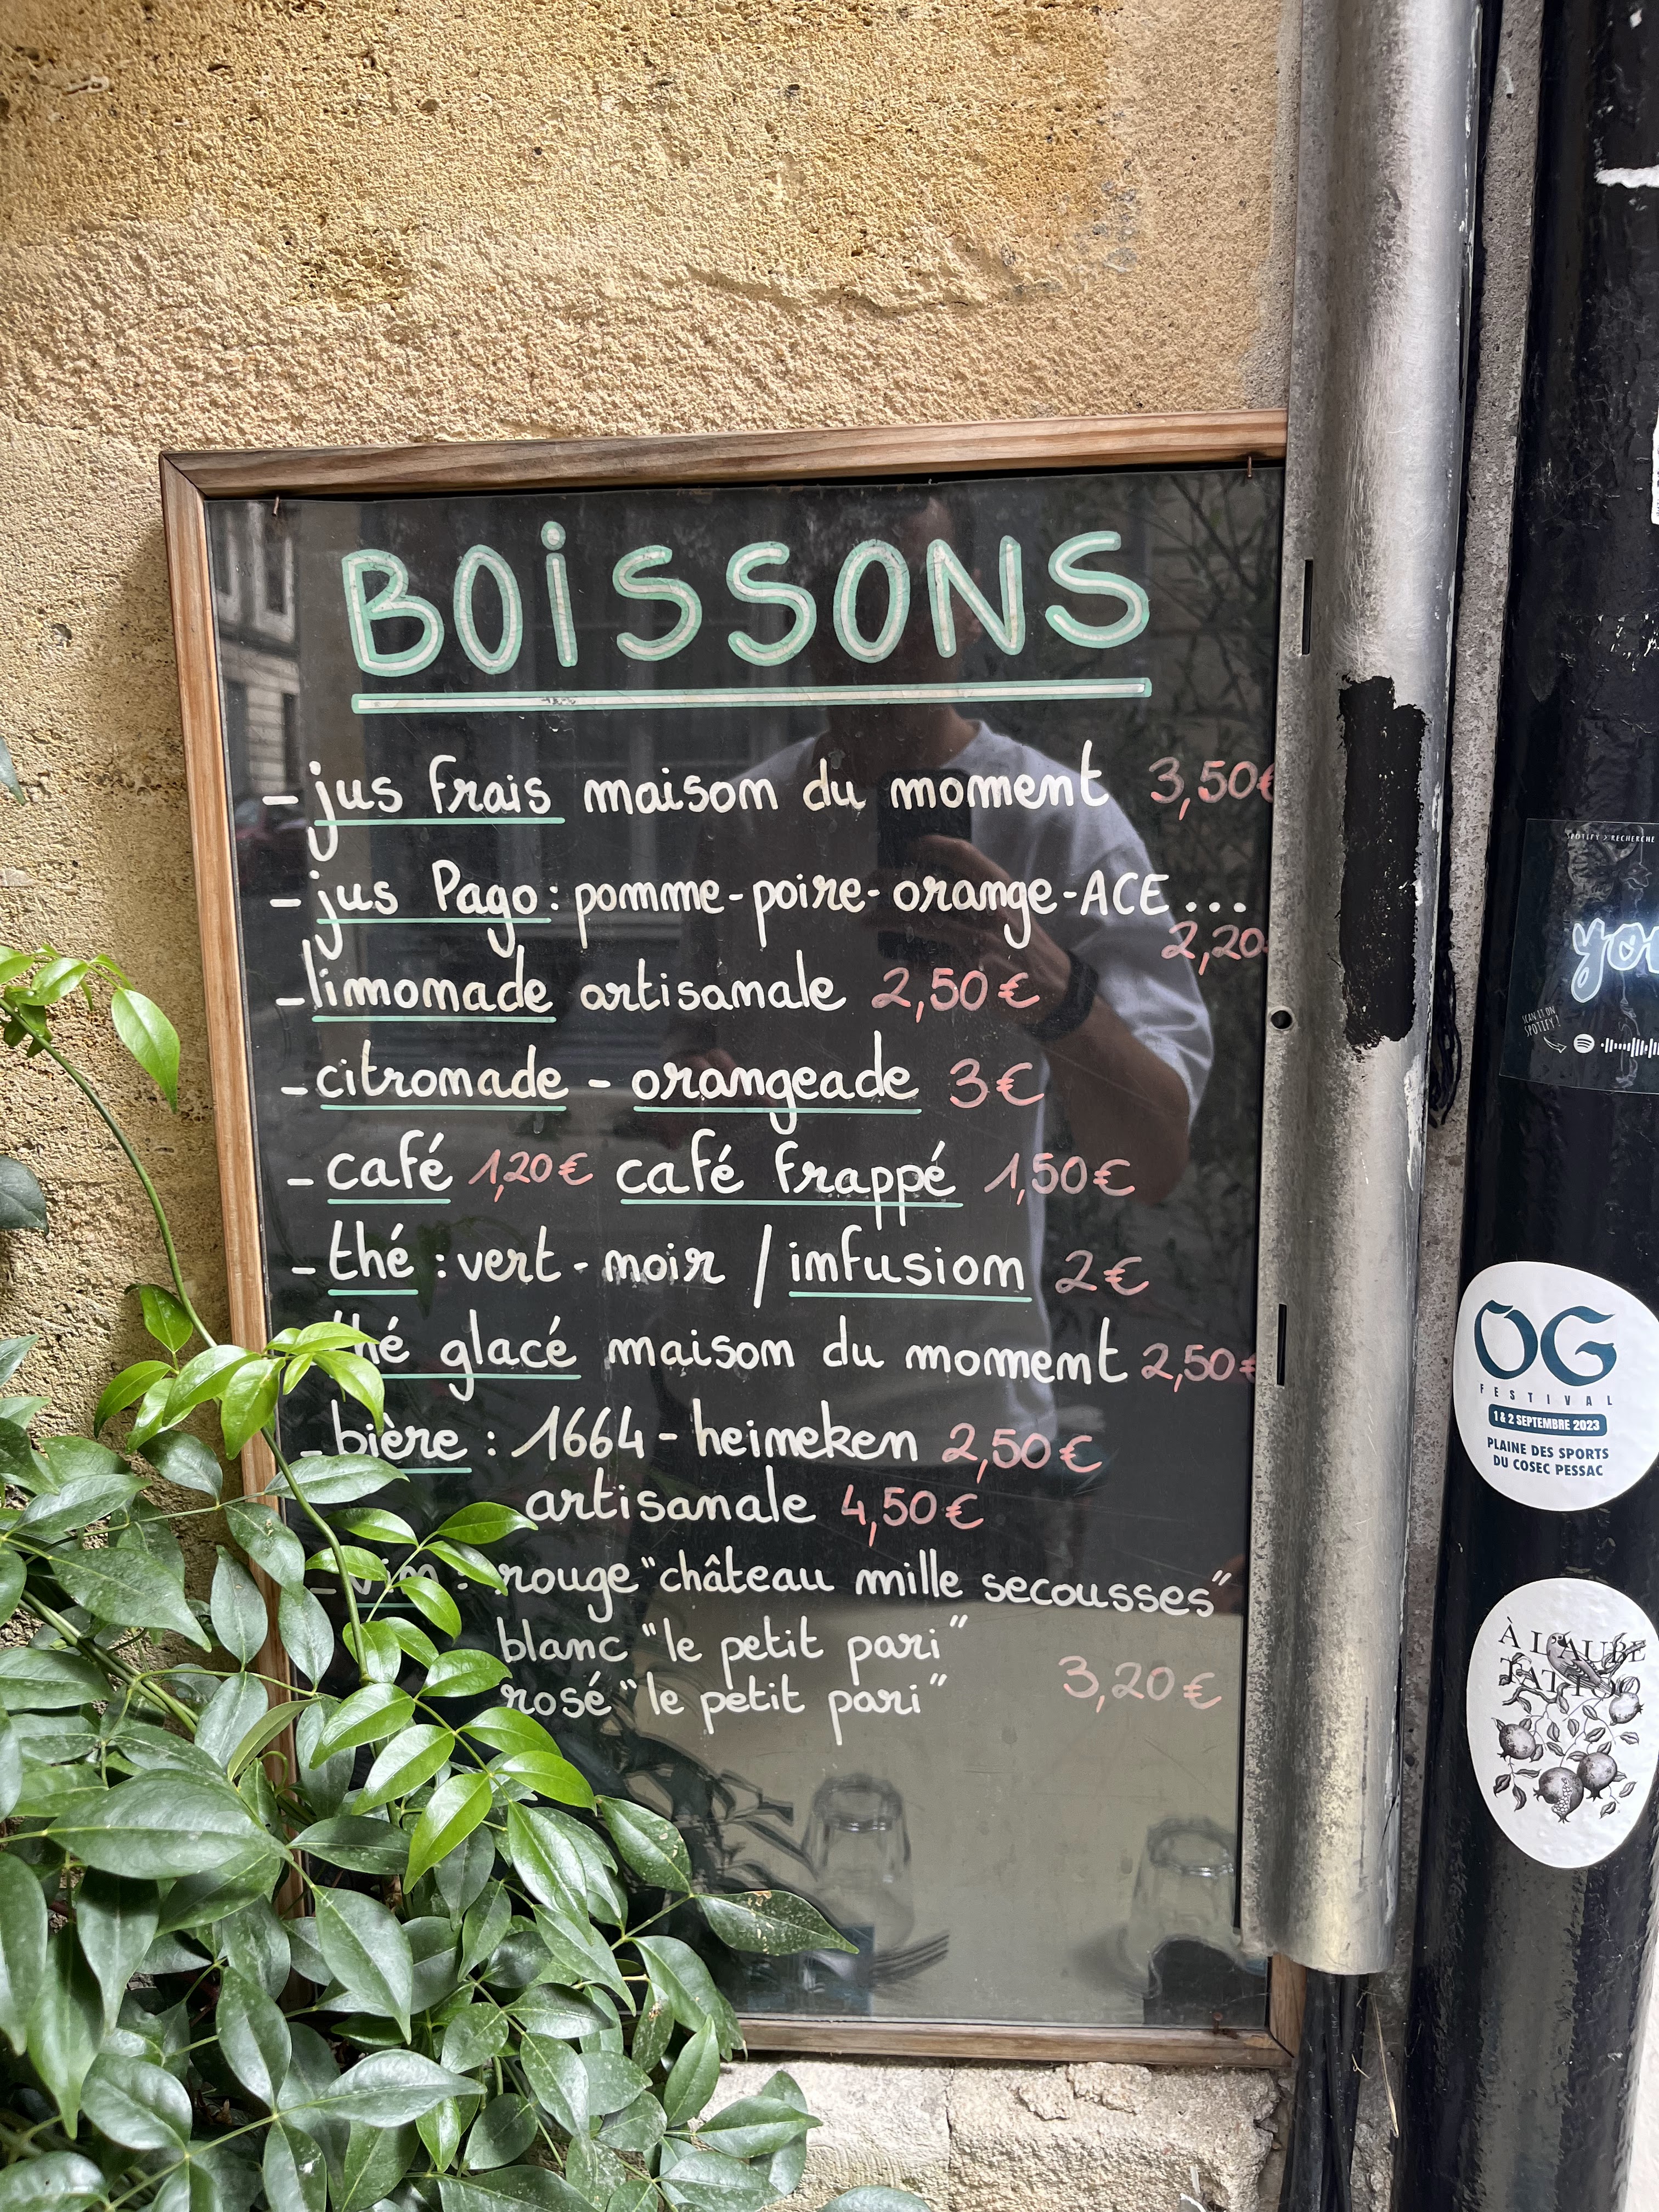 BOiSSONS
- jus frais maison du moment 3,50€
- jus Pago : pomme - poire - orange - ACE ...
2,20
- limonade artisanale 2,50€
- citronade - orangeade 3€
- café 1,20€ café frappé 1,50€
- thé : vert - noir / infusion 2€
thé glacé maison du moment 2,50€
- bière : 1664 - heineken 2,50€
artisanale 4,50€
- vin : rouge "château mille secousses"
blanc "le petit pari"
rosé "le petit pari" 3,20€
SPOTIFY > RECHERCHE
you
SCAN IT ON
SPOTIFY !
OG
FESTIVAL
1 & 2 SEPTEMBRE 2023
PLAINE DES SPORTS
DU COSEC PESSAC
À L'AUBE
TATTOO